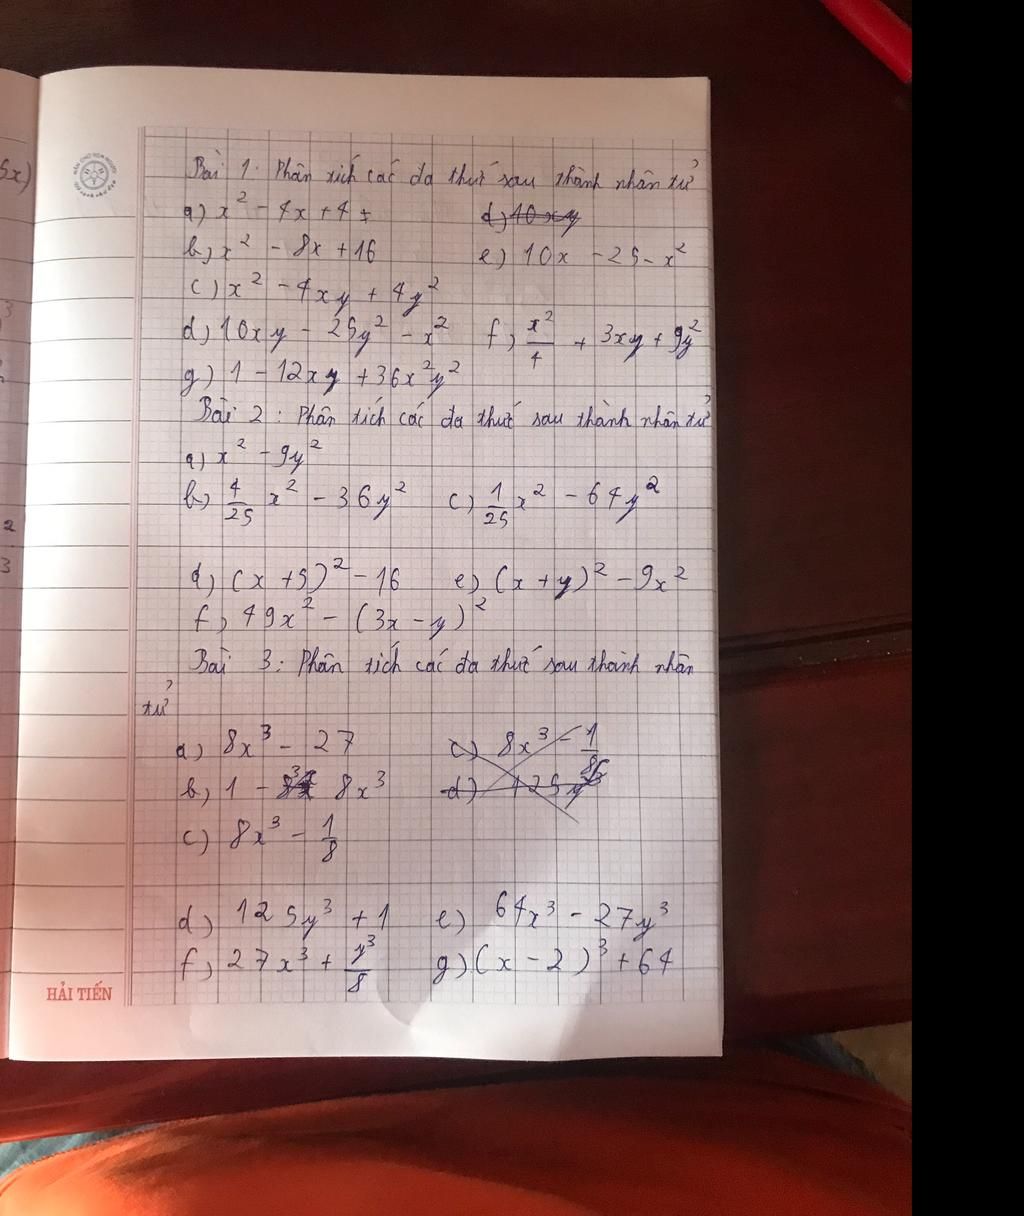 5x)
Bài 1: Phân tích các đa thức sau thành nhân tử
a) x² - 4x + 4 =
b) x² - 8x + 16 e) 10x - 25 - x²
c) x² - 4xy + 4y²
d) 10xy - 25y² - x² f) x²/4 + 3xy + 9y²
g) 1 - 12xy + 36x²y²
Bài 2: Phân tích các đa thức sau thành nhân tử
a) x² - 9y²
b) 4/25 x² - 36y² c) 1/25 x² - 64y²
d) (x + 5)² - 16 e) (x + y)² - 9x²
f) 49x² - (3x - y)²
Bài 3: Phân tích các đa thức sau thành nhân
tử
a) 8x³ - 27 c) 8x³ - 1/8
b) 1 - 8x³ d) 125y³
c) 8x³ - 1/8
d) 125y³ + 1 e) 64x³ - 27y³
f) 27x³ + y³/8 g) (x - 2)³ + 64
HẢI TIẾN